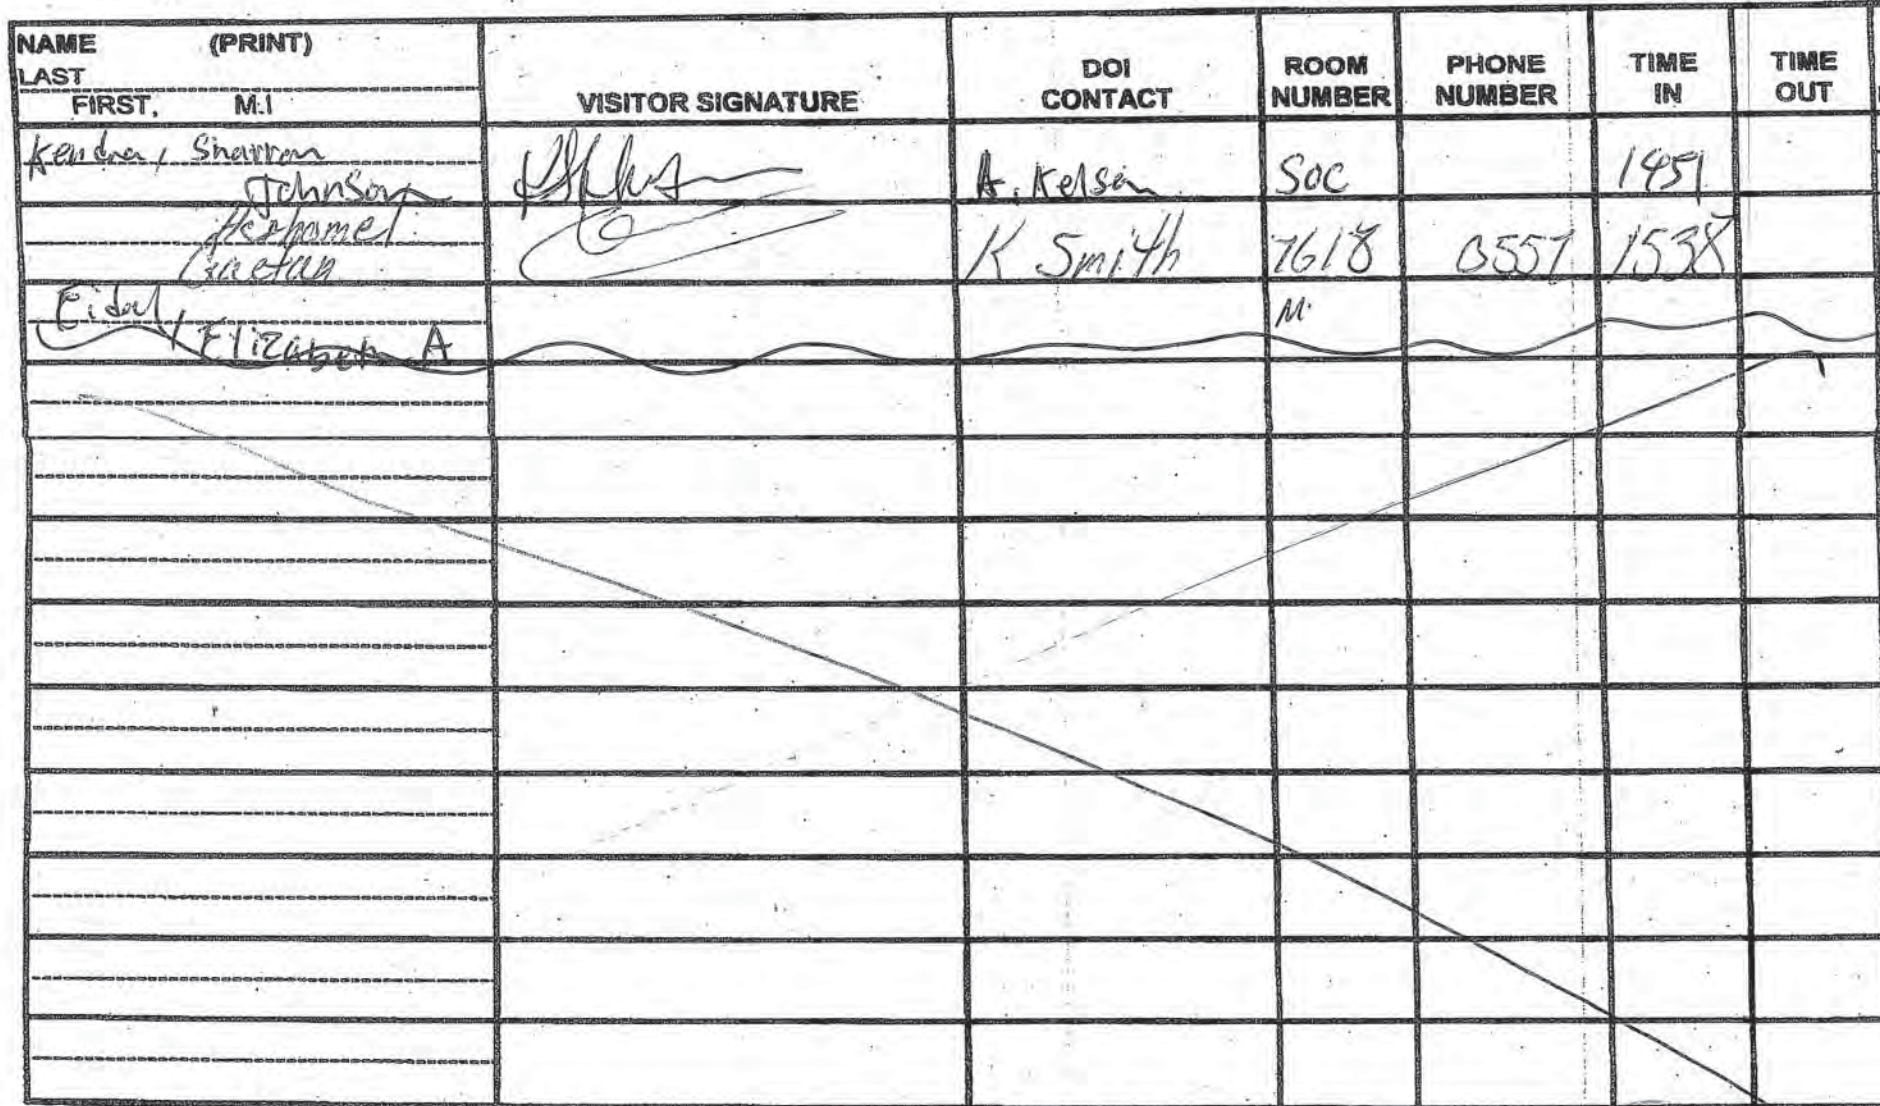 NAME (PRINT)
LAST
FIRST, M.I
VISITOR SIGNATURE
DOI
CONTACT
ROOM
NUMBER
PHONE
NUMBER
TIME
IN
TIME
OUT
Kendra, Sharron
Johnson
A. Kelsen
SOC
1451
Gaetan
K Smith
7618
0557
1538
Eidal, Elizabeth A
M.